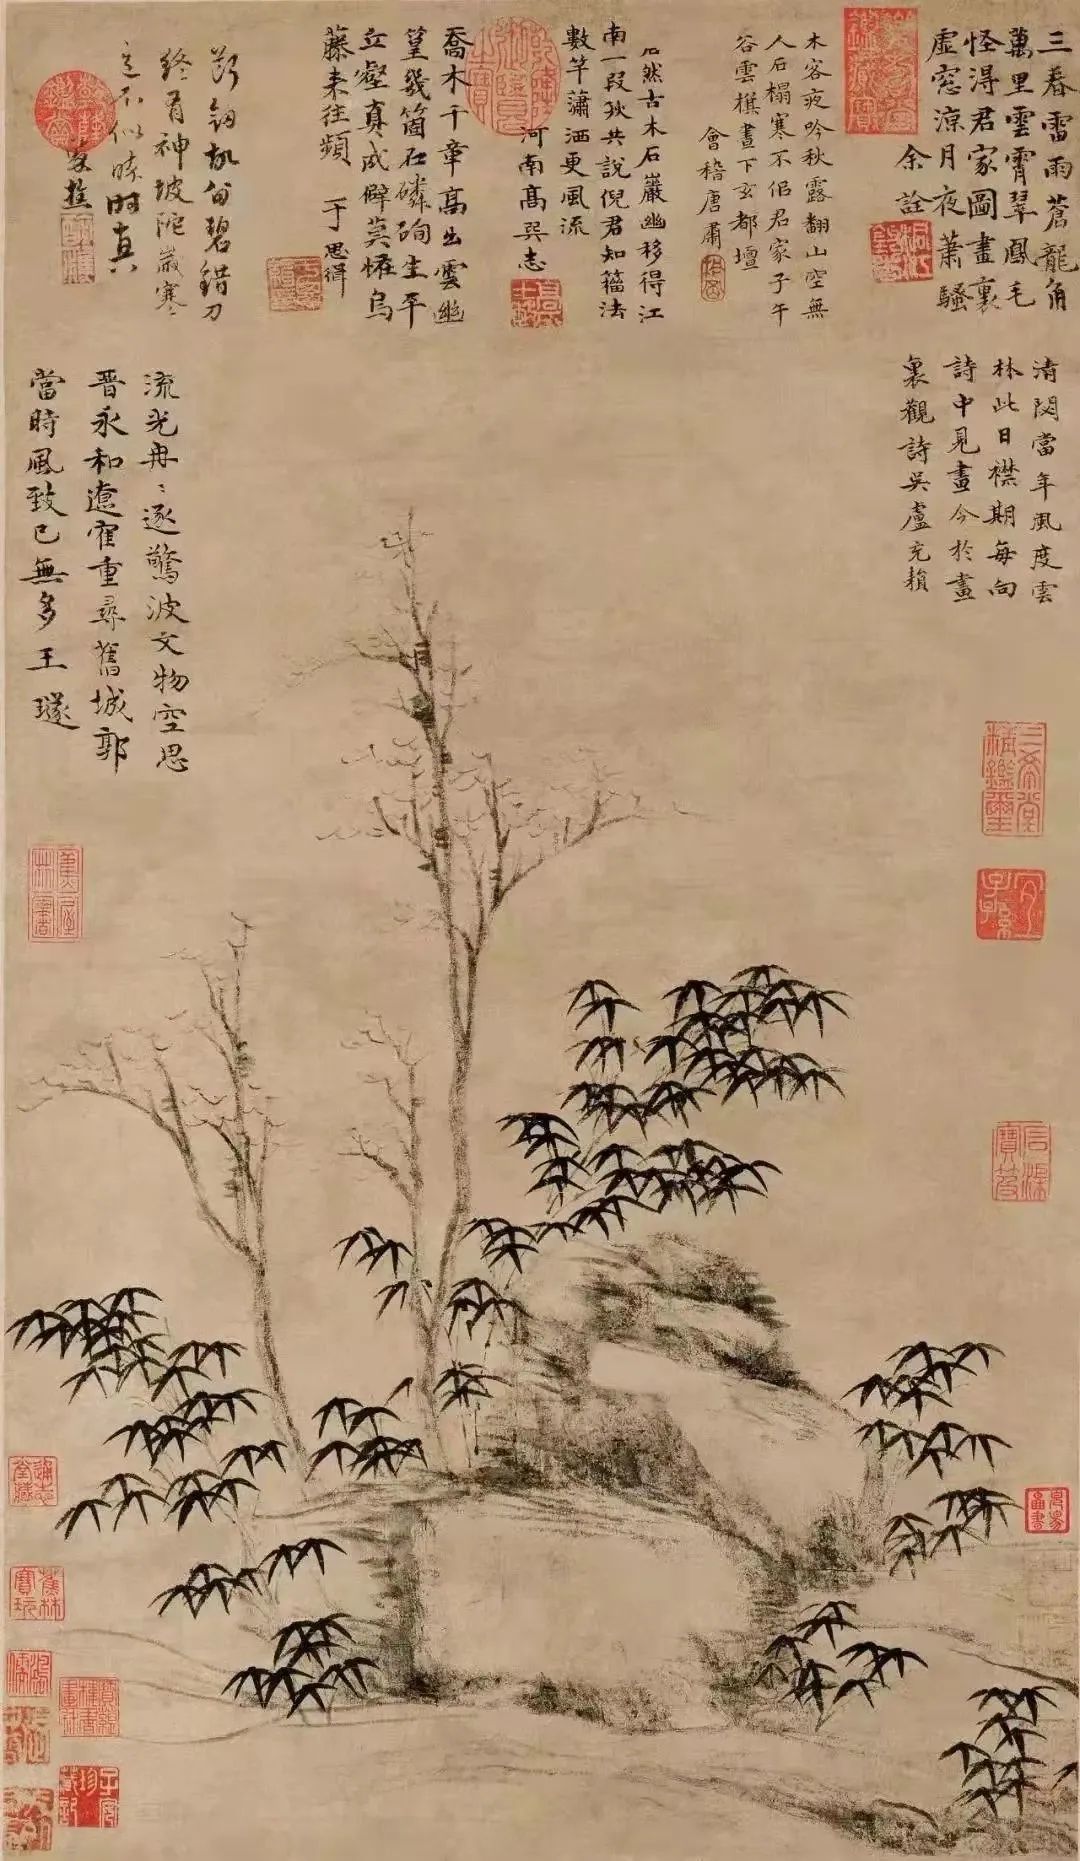 三春雷雨蒼龍角
萬里雲霄翠鳳毛
怪得君家圖畫裏
虛窓涼月夜蕭騷
余詮
木客夜吟秋露翻山空無
人石榻寒不侶君家子午
谷雲樵晝下玄都壇
會稽唐肅
然古木石巖幽移得江
南一段秋共說倪君知籀法
數竿瀟洒更風流
河南高巽志
喬木千章高出雲幽
篁幾箇石磷峋生平
立壑真成癖莫怪烏
藤来往頻 于思緝
碧錯刀
終有神坡陀歲寒
不似時真
樵
清閟當年風度雲
林此日襟期每向
詩中見畫今於畫
裏觀詩吳盧充
流光冉〻逐驚波文物空思
晉永和遼隺重尋舊城郭
當時風致已無多王璲
乾隆御覽之寶
乾隆鑑賞
三希堂精鑑璽
宜子孫
蕉林書屋
蕉林寶玩